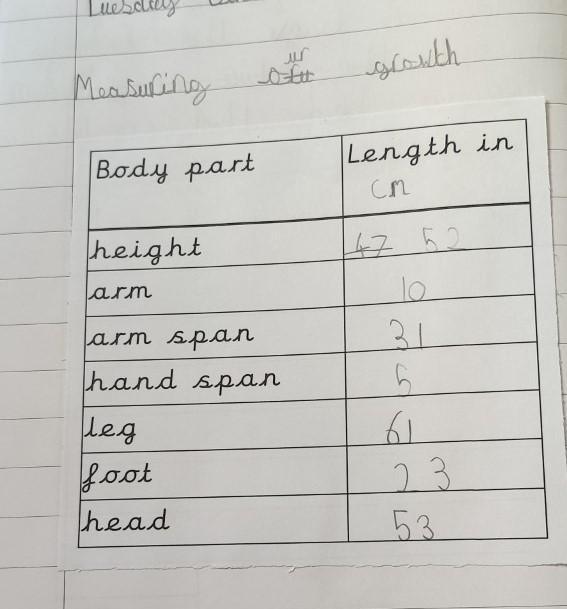 Tuesday
Measuring our growth
Body part Length in
cm
height 47 52
arm 10
arm span 31
hand span 5
leg 61
foot 23
head 53